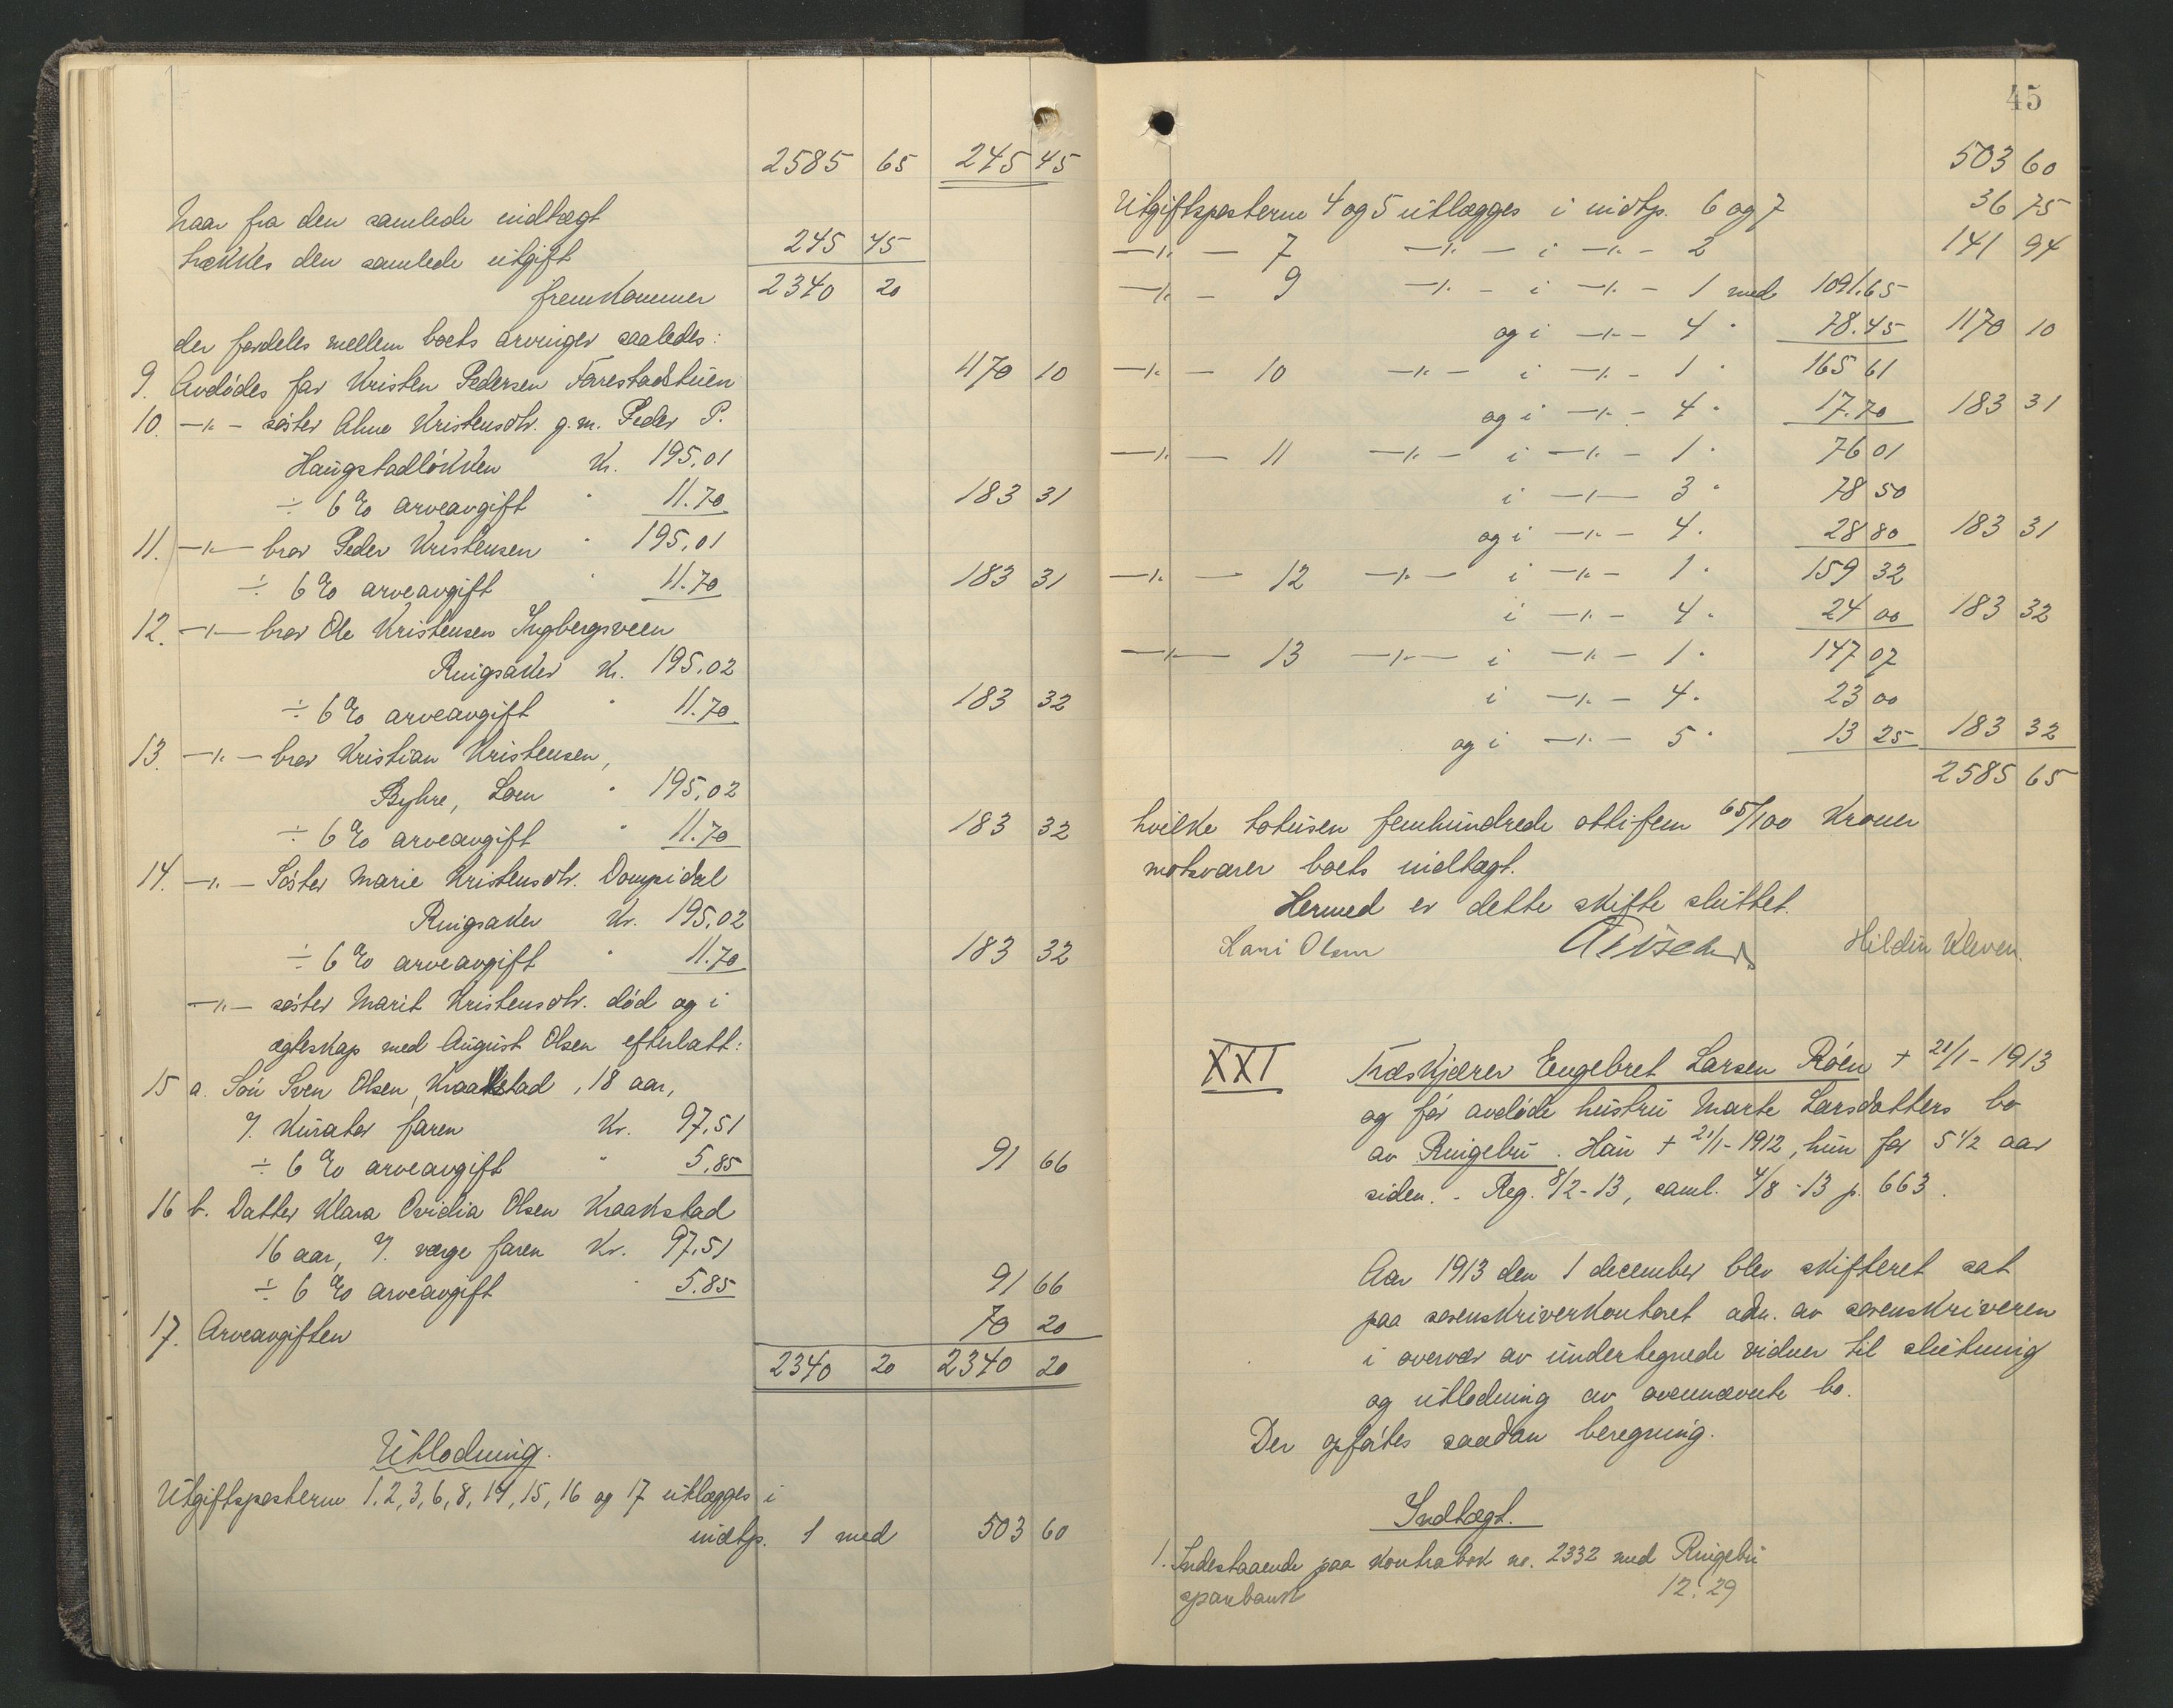 2585 65 245 45
Naar fra den samlede indtægt
trækkes den samlede utgift 245 45
fremkommer 2340 20
der fordeles mellem boets arvinger saaledes:
9. Avdödes far Kristen Pedersen Farestadstuen 1170 10
10. -"- söster Ahne Kristensdtr. g.m. Peder P.
Haugstadlökken Kr. 195,01
÷ 6 % arveavgift " 11.70 183 31
11. -"- bror Peder Kristensen " 195,01
÷ 6 % arveavgift " 11.70 183 31
12. -"- bror Ole Kristensen Ingbergsveen
Ringsaker Kr. 195,02
÷ 6 % arveavgift " 11.70 183 32
13. -"- bror Kristian Kristensen,
Byhre, Loen " 195,02
÷ 6 % arveavgift " 11.70 183 32
14. -"- Söster Marie Kristensdtr. Dompidal
Ringsaker Kr. 195,02
÷ 6 % arveavgift " 11.70 183 32
-"- söster Marit Kristensdtr. död og i
egteskap med August Olsen efterlatt:
15 a. Sön Sven Olsen, Kraakstad, 18 aar,
/. Kurator faren Kr. 97,51
÷ 6 % arveavgift " 5,85 91 66
16 b. Datter Klara Ovidia Olsen Kraakstad
16 aar, /. verge faren Kr. 97,51
÷ 6 % arveavgift " 5.85 91 66
17. Arveavgiften 70 20
2340 20 2340 20
Utlodning.
Utgiftsposterne 1, 2, 3, 6, 8, 14, 15, 16 og 17 utlægges i
indtp. 1 med 503 60
45
503 60
Utgiftsposterne 4 og 5 utlægges i indtp. 6 og 7 36 75
-"- - 7 -"- - i -"- - 2 141 94
-"- - 9 -"- - i -"- - 1 med 1091.65
og i -"- - 4 " 78.45 1170 10
-"- - 10 -"- - i -"- - 1 " 165 61
og i -"- - 4 " 17.70 183 31
-"- - 11 -"- - i -"- - 1 " 76 01
i -"- 3 " 78 50
og i -"- - 4 " 28 80 183 31
-"- - 12 -"- - i -"- - 1 " 159 32
i -"- - 4 " 24 00 183 32
-"- 13 -"- i -"- - 1 " 147 07
i -"- - 4 " 23 00
og i -"- - 5 " 13 25 183 32
2585 65
hvilke totusen femhundrede ottifem 65/100 kroner
motsvarer boets indtægt.
Hermed er dette skifte sluttet.
Kari Olsen Hildur Kleven.
XXI Træskjærer Engebret Larsen Röen + 21/1 - 1913
og för avdöde hustru Marte Larsdatters bo
av Ringebu. Han + 21/1 - 1912, hun for 5 1/2 aar
siden. - Reg. 8/2-13, saml. 4/8-13 p. 663.
Aar 1913 den 1 december blev skifteret sat
paa sorenskriverkontoret adm. av sorenskriveren
i overvær av undertegnede vidner til slutning
og utlodning av ovennævnte bo.
Der opførtes saadan beregning.
Indtægt.
1. Indestaaende paa kontrabok no. 2332 med Ringebu
sparebank 12.29